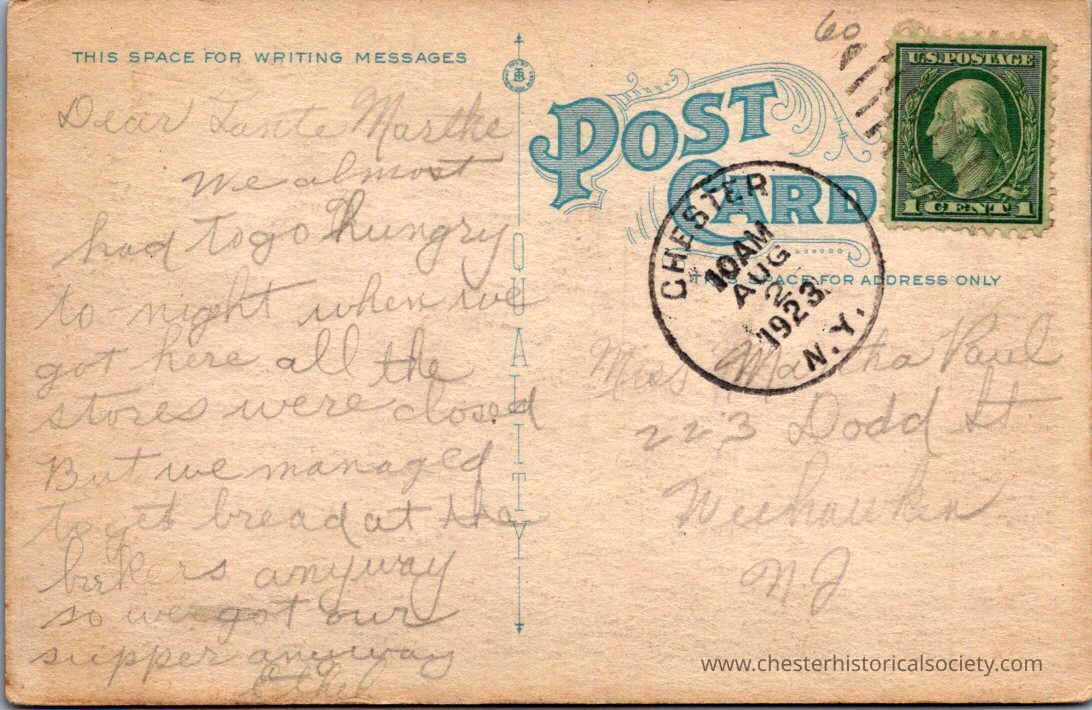 THIS SPACE FOR WRITING MESSAGES
Dear Tante Marthe
we almost
had to go hungry
to night when we
got here all the
stores were closed
But we managed
to get bread at the
bakers anyway
so we got our
supper anyway
Ethel
QUALITY
POST
CARD
60
U.S. POSTAGE
1 CENT 1
CHESTER
10 AM
AUG
2
1923
N.Y.
THIS SPACE FOR ADDRESS ONLY
Miss Martha Paul
223 Dodd St.
Weehawken
N J
www.chesterhistoricalsociety.com